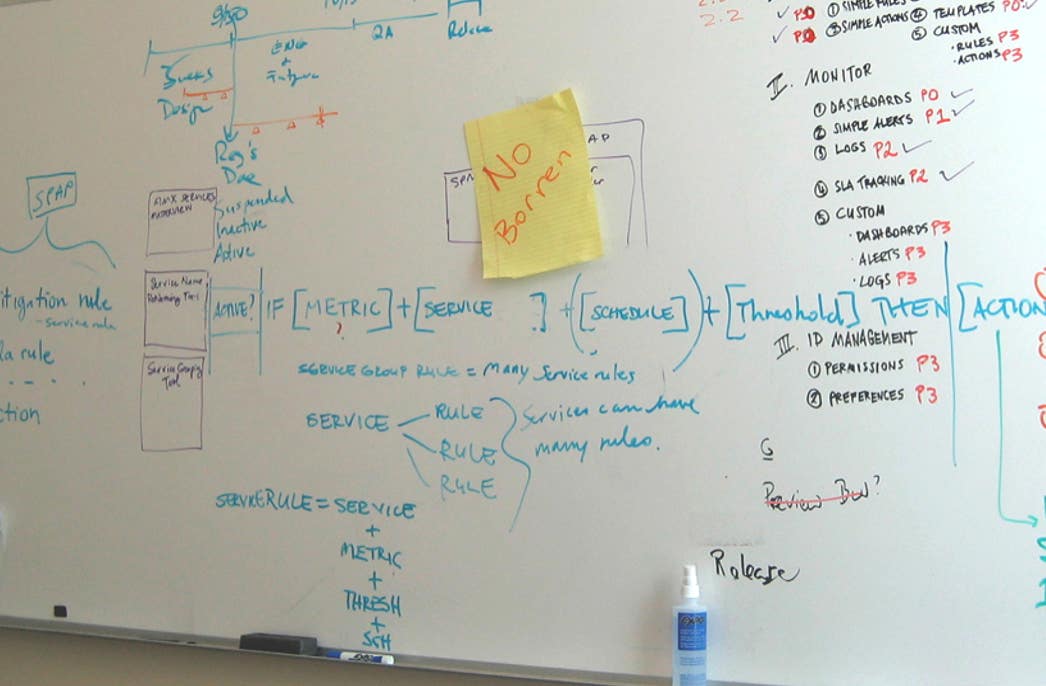 9/30
QA
Release
Design
Reg's
Due
2.2
P0 ① SIMPLE RULES
P0 ③ SIMPLE ACTIONS ④ TEMPLATES P0
⑤ CUSTOM
· RULES P3
· ACTIONS P3
II. MONITOR
① DASHBOARDS P0
② SIMPLE ALERTS P1
③ LOGS P2
④ SLA TRACKING P2
⑤ CUSTOM
· DASHBOARDS P3
· ALERTS P3
· LOGS P3
III. ID MANAGEMENT
① PERMISSIONS P3
② PREFERENCES P3
No
Borren
SPAP
SERVICES
Suspended
Inactive
Active
Service Name
Service Grouping
Tool
itigation rule
- service rule
la rule
ction
ACTIVE? IF [METRIC] + [SERVICE ] + ([SCHEDULE]) + [Threshold] THEN [ACTION
?
SERVICE GROUP RULE = Many Service rules
SERVICE
RULE
RULE
RULE
Services can have
many rules.
SERVICE RULE = SERVICE
+
METRIC
+
THRESH
+
SCH
G
Preview Box?
Release
EXPO
EXPO